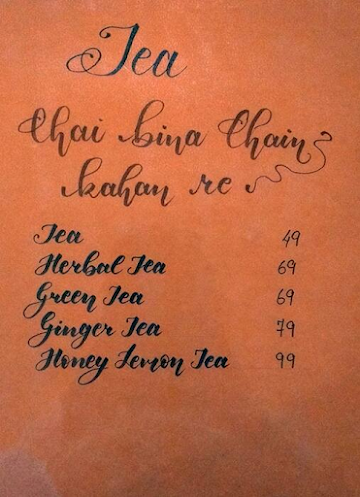 Tea
Chai bina Chain
kahan re
Tea 49
Herbal Tea 69
Green Tea 69
Ginger Tea 79
Honey Lemon Tea 99